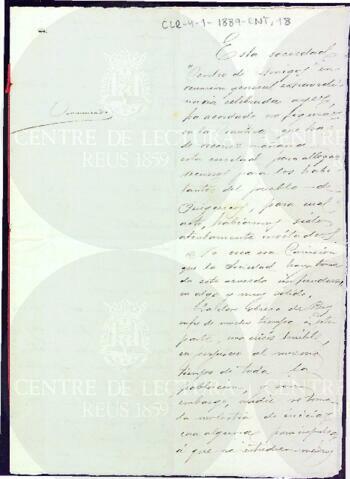 CLR-4-1-1889-CNT, 18
Esta sociedad
"Centro de Amigos" en
reunion general extraordi
naria celebrada ayer
ha acordado no figurar
en la
de recorrer mañana
esta ciudad para allegar
recursos para los habi
tantes del pueblo de
Puigcerós, para cual
acto, habíamos sido
atentamente invitados.
Comunicado
No crea esa Comision
que la Sociedad haya toma
do este acuerdo
en algo y muy sólido.
La clase obrera de Reus
sufre de mucho tiempo á esta
parte, una crisis terrible,
en perjuicio al mismo
tiempo de toda la
población, y sin
embargo, nadie se toma
la molestia de iniciar
cosa alguna para
á que se
CENTRE DE LECTURA
REUS 1859
CENTRE DE LECTURA
REUS 1859